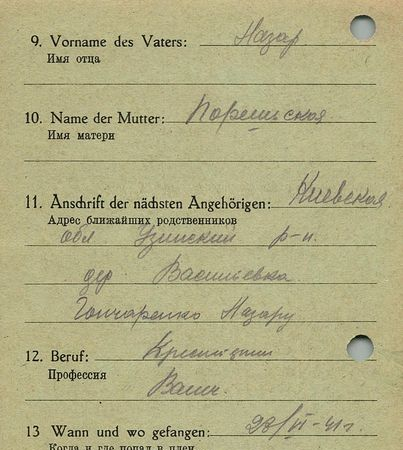 9. Vorname des Vaters: Назар
Имя отца
10. Name der Mutter:
Имя матери
11. Anschrift der nächsten Angehörigen: Киевская
Адрес ближайших родственников
обл Узинский р-н.
дер Васильевка
Гончаренко Назару
12. Beruf:
Профессия
13 Wann und wo gefangen: 28/VI-41г.
Когда и где попал в плен